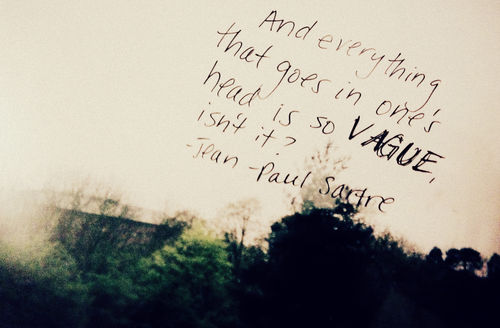 And everything
that goes in one's
head is so VAGUE,
isn't it?
-Jean-Paul Sartre